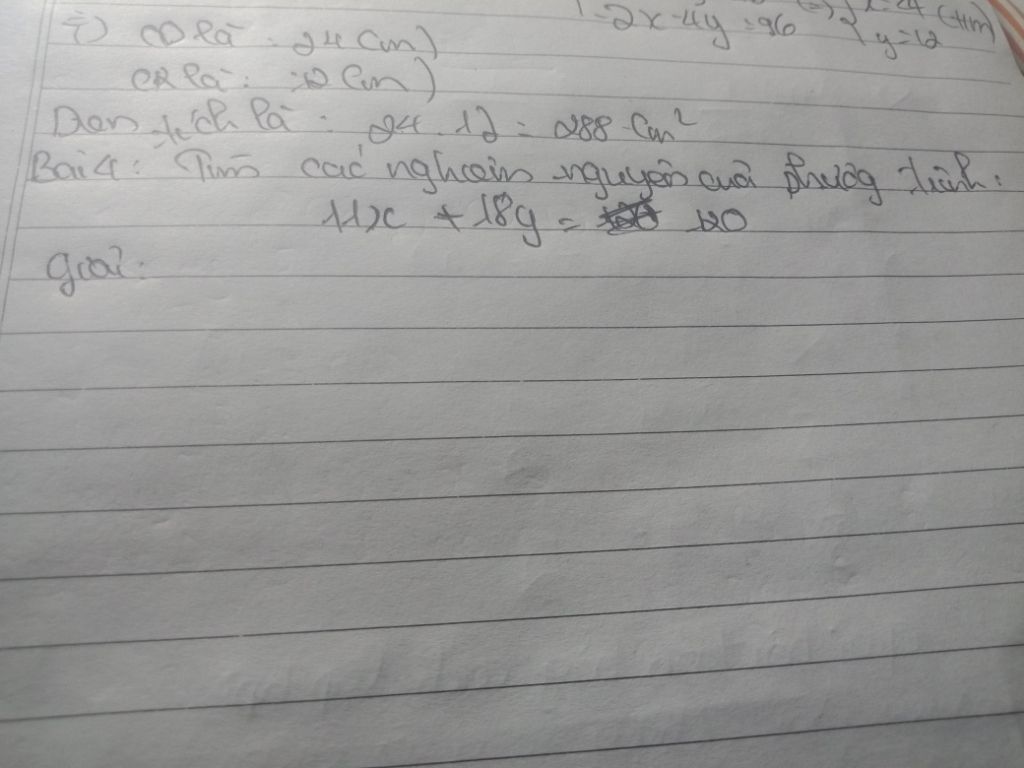 -2x-4y=96 y=12 (TM)
CD là : 24 (cm)
CR là : 12 (cm)
Diện tích là : 24.12 = 288 cm²
Bài 4: Tìm các nghiệm nguyên của phương trình:
11x + 18y = 120
Giải: